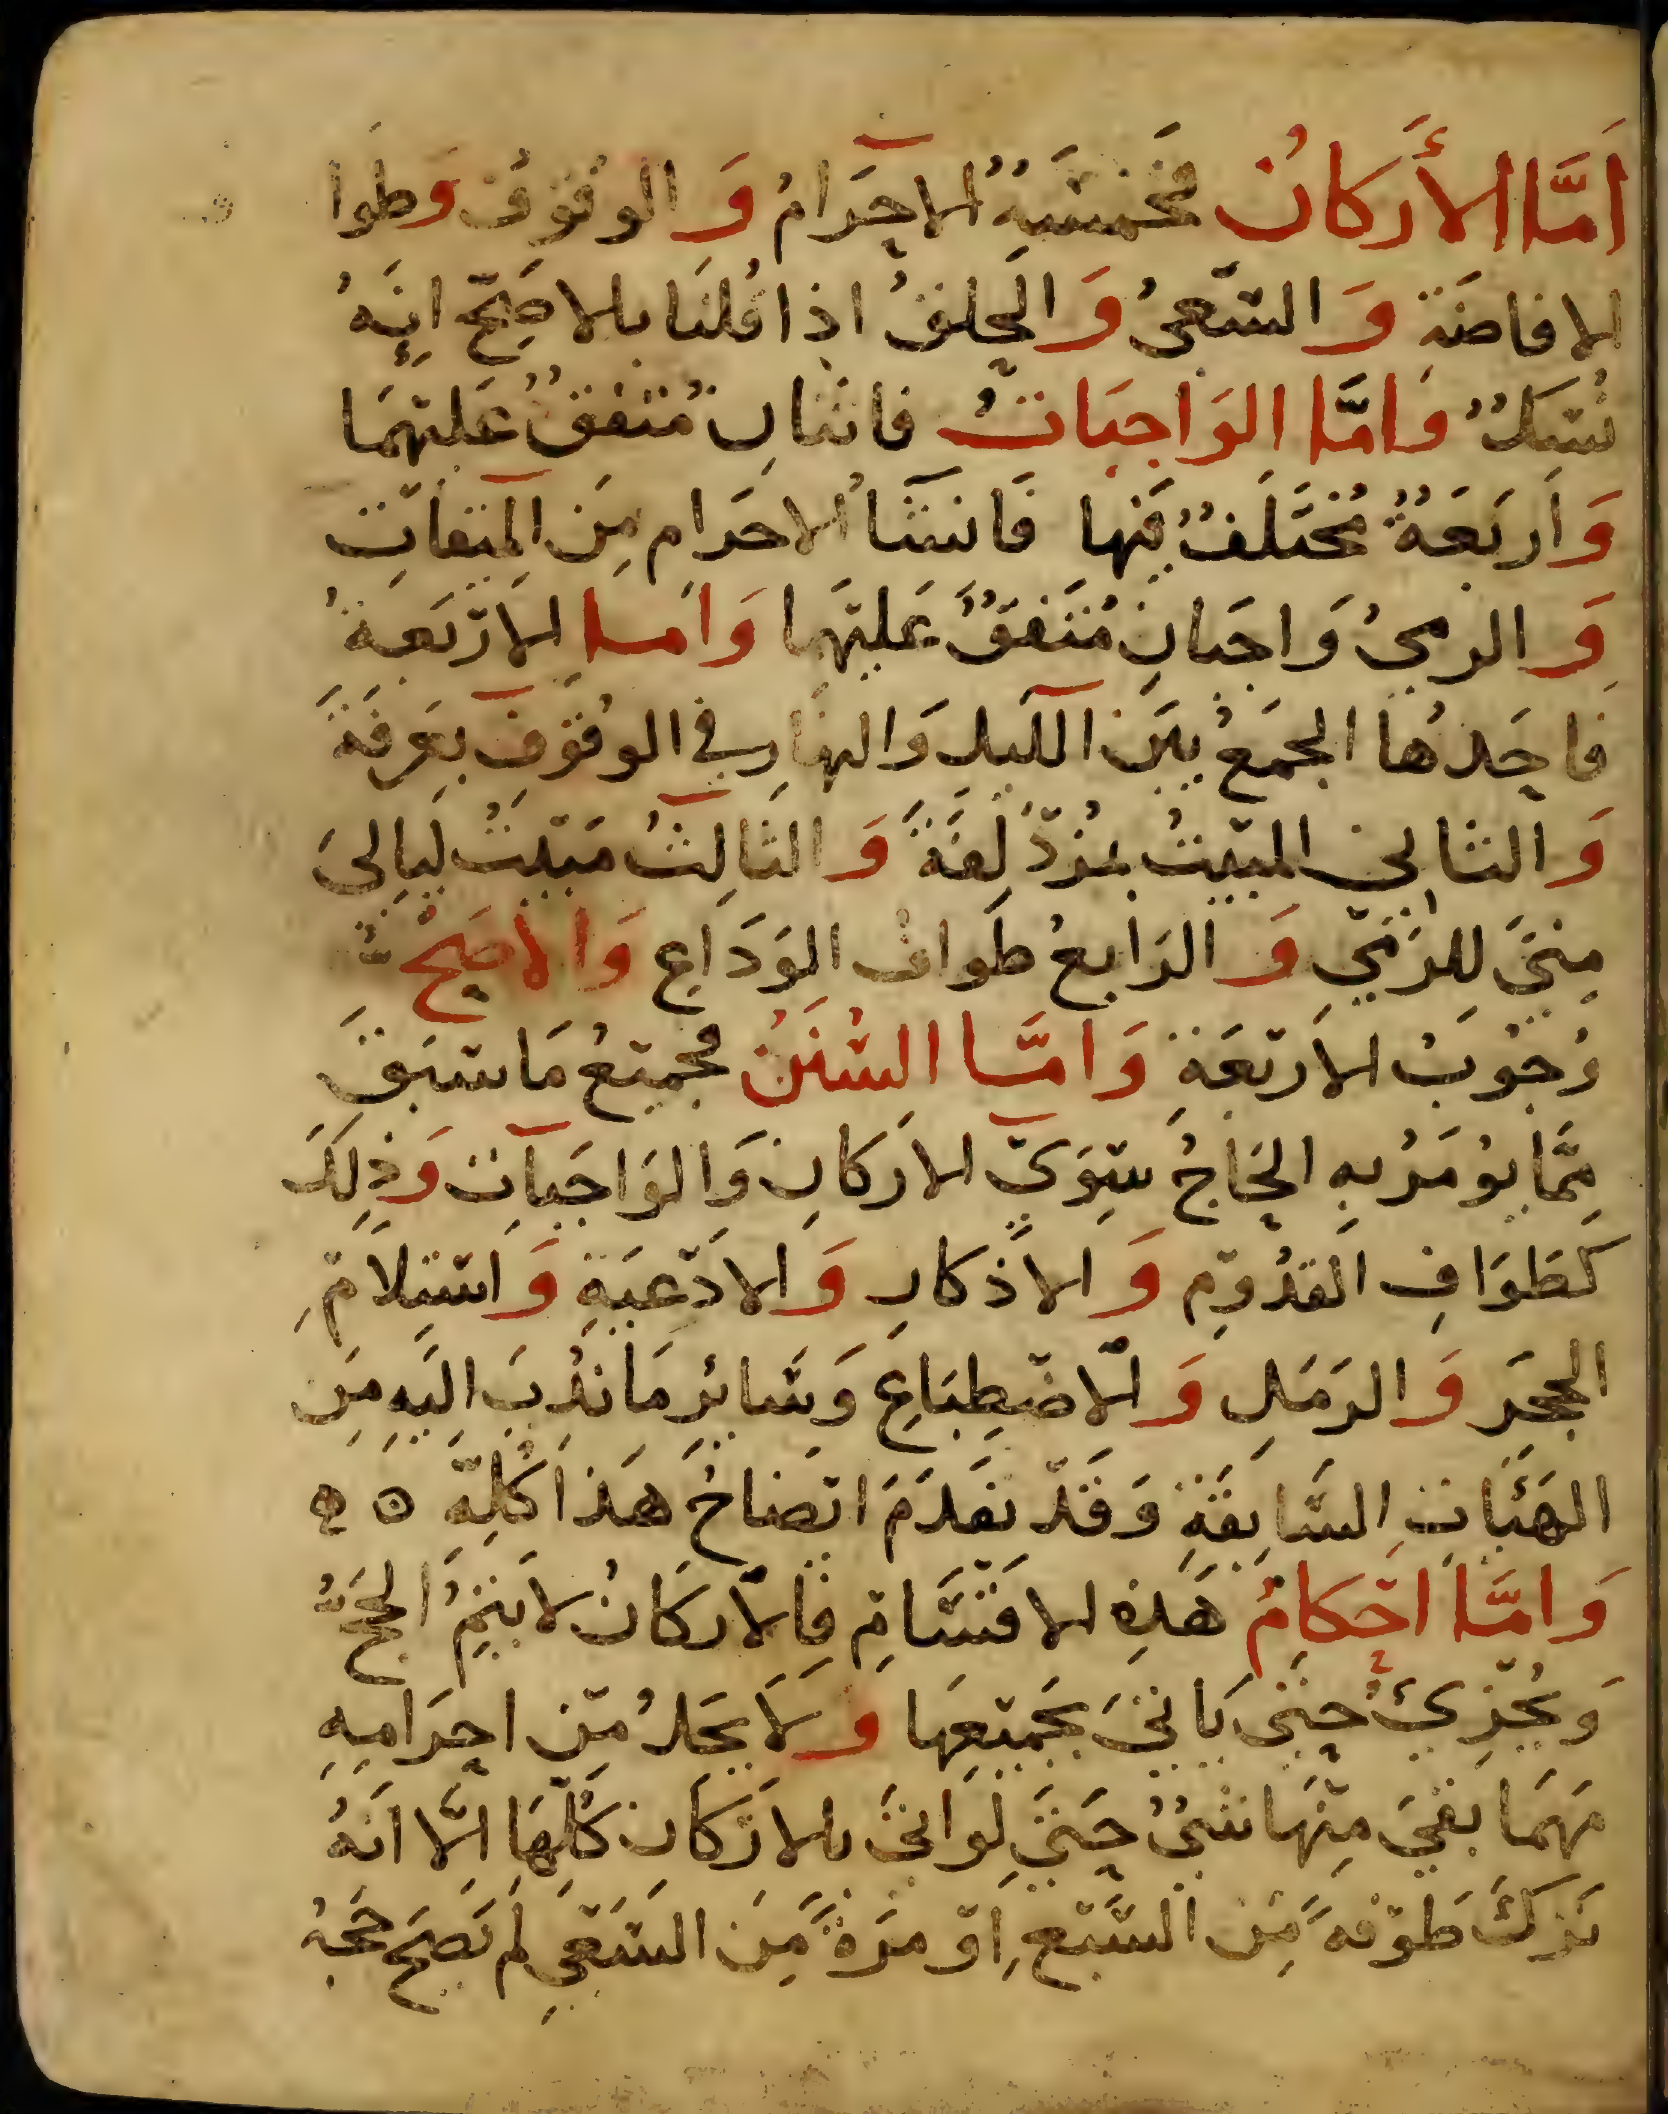 اَمَّا الأَركانُ فخَمسَةٌ الاِحرَامُ وَالوقُوفُ وَطوا
الافاضَةِ وَالسَّعىُ وَالحِلقُ اذا قُلنَا بالاصَحِّ انهُ
نُسُكٌ وَامَّا الوَاجبَاتُ فاثنانِ مُتفقٌ عَليهمَا
وَاَربَعَةٌ مُختَلَفٌ فيها فَانشَآءُ الاحرَامِ مِنَ المِيقاتِ
وَالرمىُ وَاجبَانِ مُتفَقٌ عَليهَا وَامَّا الاَربَعةُ
فاحَدُهَا الجَمعُ بَينَ اللَّيلِ وَالنهَارِ فى الوقُوفِ بعَرفَةَ
وَالثانى المَبيتُ بمُزدَلِفَةَ وَالثالِثُ مَبيتُ لَيالىَ
مِنىَ للرَمي وَالرَابعُ طَوافُ الوَدَاعِ وَالاصَحُّ
وُجُوبُ الاَربعَةِ وَامَّا السُّنَنُ فجميعُ مَا سَبَقَ
مِمَّا يؤمَرُ بهِ الحَاجُّ سِوَى الاَركانِ وَالوَاجبَاتِ وَذلِكَ
كَطَوَافِ القدُومِ وَالاَذكارِ وَالاَدعيَةِ وَاستِلامِ
الحجَرِ وَالرَمَلِ وَالاضطِبَاعِ وَسَائرِ مَا نُدِبَ اليَهِ مِنَ
الهَيئَاتِ السَّابقَةِ وَقَد تقَدَمَ ايضَاحُ هَذا كُلِّهِ ٥ ه
وَامَّا احكامُ هَذِهِ الاقسَامِ فالاركَانُ لا يَتِمُّ الحَجُّ
وَيُجزِئُ حتى يَاتىَ بجَميعِهَا وَلَا يحَلُ مِن احرَامِهِ
مَهمَا بقىَ مِنهَا شىءٌ حَتى لو اتىَ بالاركانِ كُلّهَا الَّا انَهُ
تَركَ طَوفهً مِنَ السَّبعِ اَو مَرَةً مِنَ السَّعىِ لم تصَحَّ حَجُّهُ